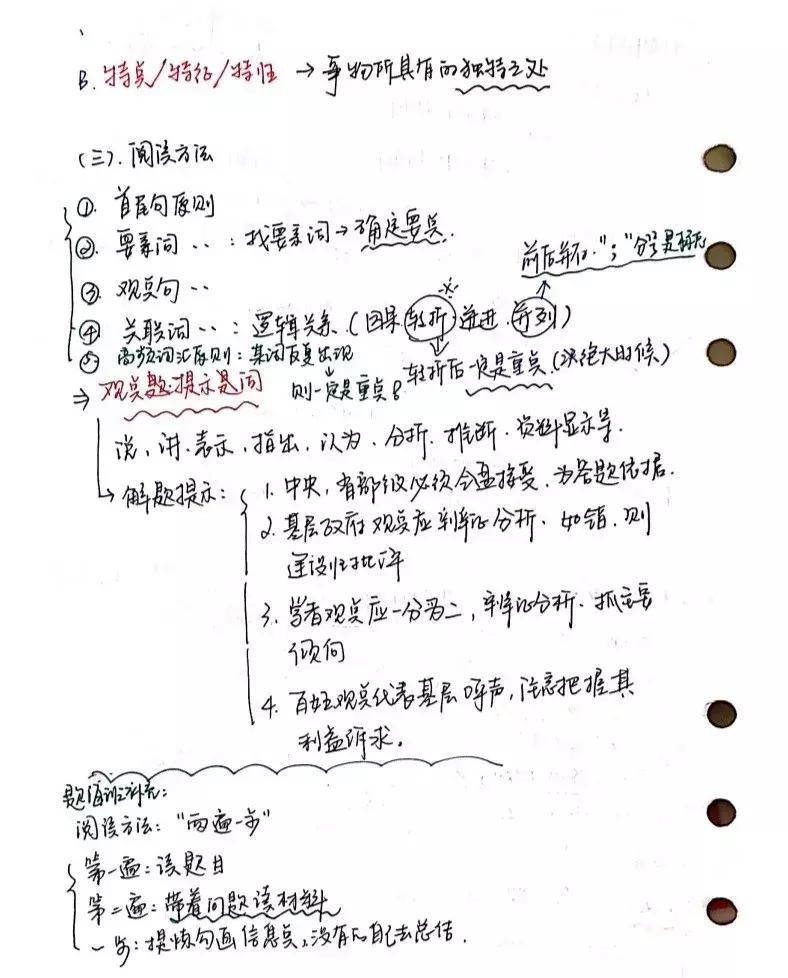 B. 特点/特征/特性 → 事物所具有的独特之处
(三). 阅读方法
①. 首尾句原则
②. 要素词 ‥ : 找要素词→确定要点.
前后并列. ";"分号是标志
③. 观点句 ‥
④ 关联词 ‥ : 逻辑关系. (因果 转折 递进. 并列)
⑤ 高频词汇原则: 某词反复出现
则一定是重点。
转折后一定是重点 (绝大时候)
⇒ 观点题: 提示是问
说, 讲. 表示, 指出, 认为. 分析. 推断. 资料显示等.
→ 解题提示:
1. 中央, 省部级必须全盘接受, 为答题依据.
2. 基层政府观点应辩证分析. 如错. 则
建设性批评
3. 学者观点应一分为二, 辩证分析. 抓主要
倾向
4. 百姓观点代表基层呼声, 注意把握其
利益诉求.
题海班补充:
阅读方法: "两遍一步"
第一遍: 读题目
第二遍: 带着问题读材料
一步: 提炼勾画信息点, 没有的自己去总结.